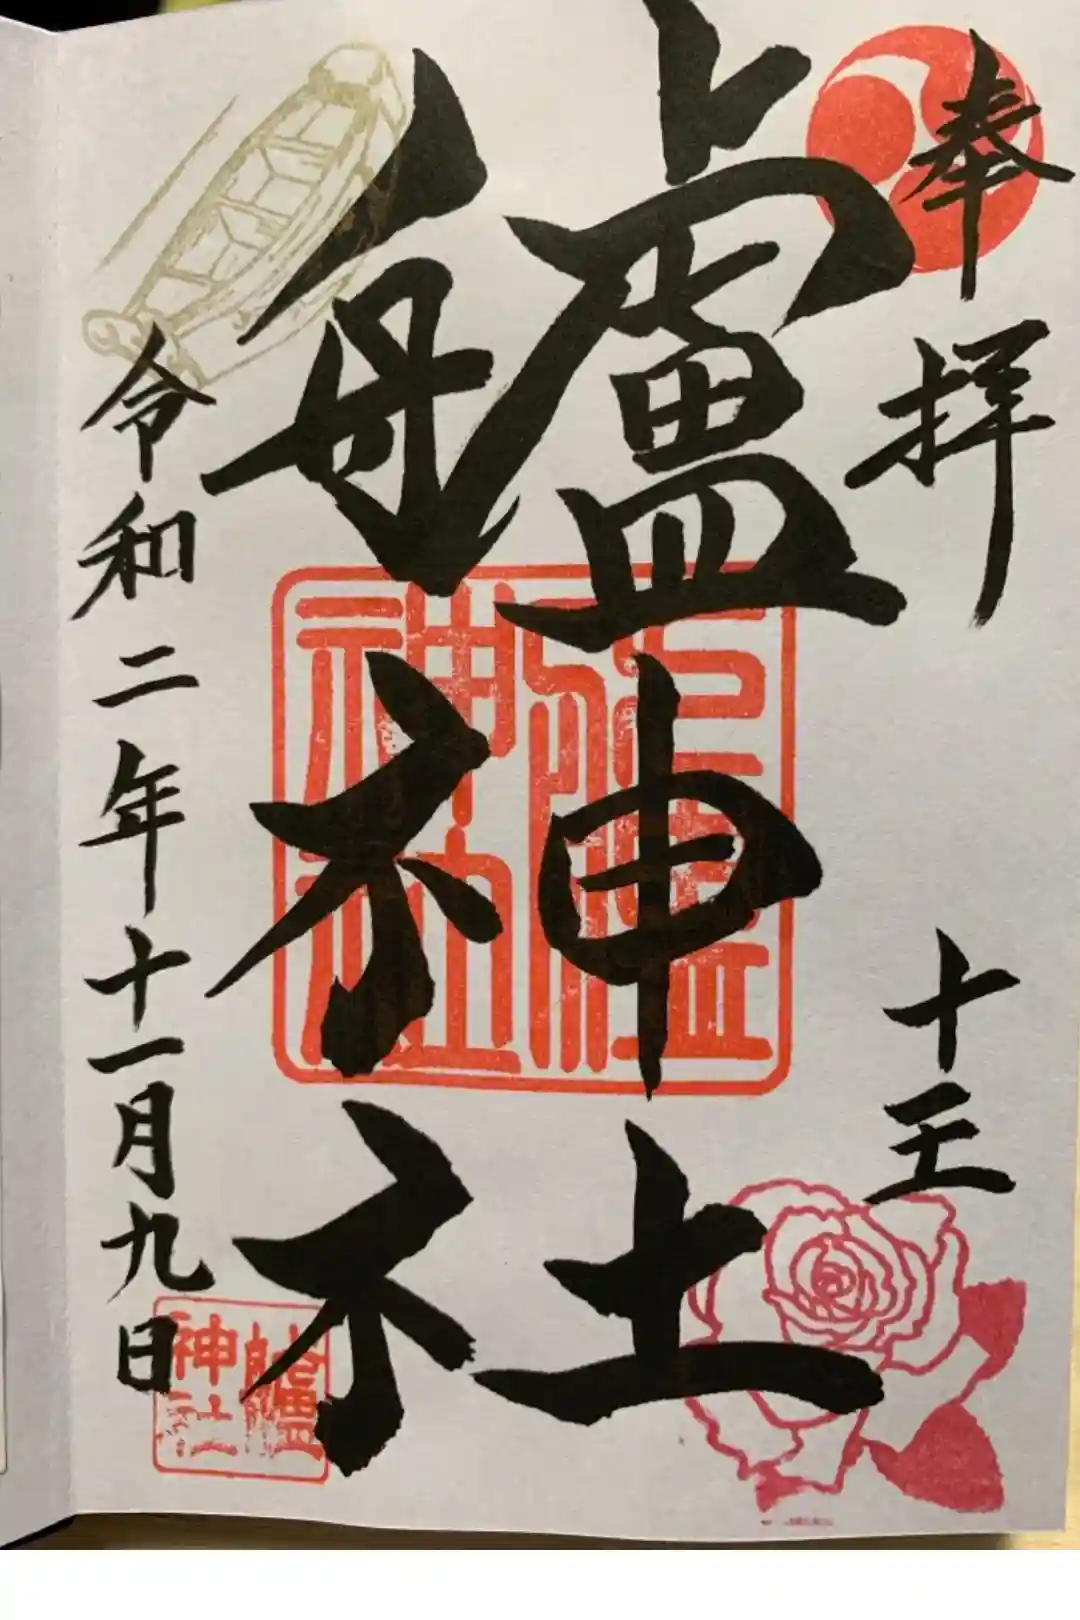 奉拝
十王
艫神社
艫神社
令和二年十一月九日
艫神社